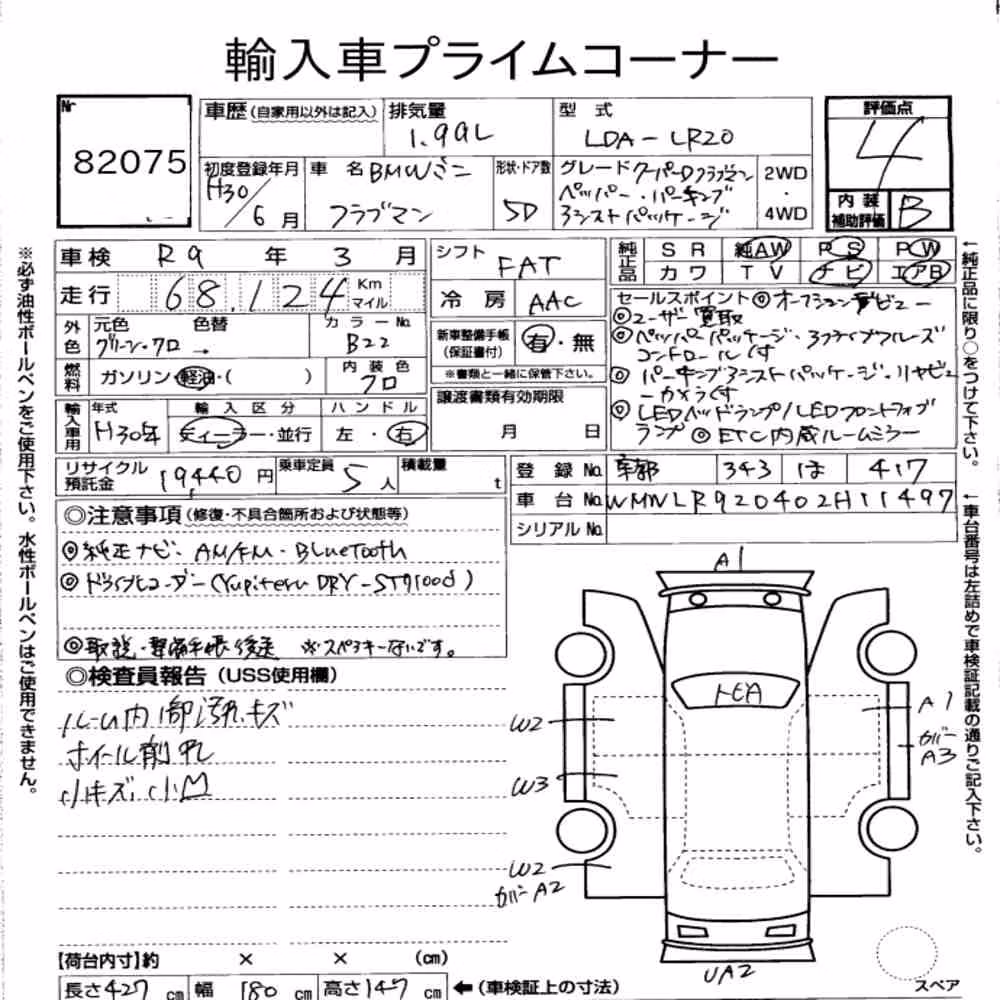 輸入車プライムコーナー
Nr
82075
車歴(自家用以外は記入)
排気量
1.99L
型式
LDA-LR20
評価点
4
初度登録年月
H30/6月
車名
BMWミニ
クラブマン
形状・ドア数
5D
グレード クーパーDクラブマン
ペッパー・パーキング
アシストパッケージ
2WD
・
4WD
内装
補助評価
B
車検 R9年3月
シフト
FAT
純正品
SR 純AW PS PW
カワ TV ナビ エアB
走行 68,124 Km
マイル
冷房 AAC
セールスポイント ◎オープションデビュー
◎ユーザー買取
◎ペッパーパッケージ・アクティブクルーズ
コントロール付
◎パーキングアシストパッケージ・リヤビュ
ーカメラ付
◎LEDヘッドランプ/LEDフロントフォグ
ランプ ◎ETC内蔵ルームミラー
外色
元色
グリーン・クロ
色替
→
カラーNo.
B22
新車整備手帳
(保証書付)
有・無
※書類と一緒に保管下さい。
燃料
ガソリン・軽油・( )
内装色
クロ
譲渡書類有効期限
月 日
輸入車用
年式
H30年
輸入区分
ディーラー・並行
ハンドル
左・右
リサイクル
預託金
19440円
乗車定員
5人
積載量
t
登録No. 343 は 417
車台No. WMWLR920402H11497
シリアルNo.
◎注意事項(修復・不具合箇所および状態等)
◎純正ナビ・AM/FM・Bluetooth
◎ドライブレコーダー(Yupiteru DRY-ST9100d)
◎取説・整備手帳後送 ※スペアキーないです。
◎検査員報告(USS使用欄)
ルーム内部汚れキズ
ホイール削れ
小キズ、小凹
【荷台内寸】約 × × (cm)
長さ427cm 幅180cm 高さ147cm ←(車検証上の寸法)
A1
トビA
W2
A1
カバー
A3
W3
W2
カバーA2
UA2
スペア
※必ず油性ボールペンをご使用下さい。水性ボールペンはご使用できません。
←純正品に限り○をつけて下さい。
←車台番号は左詰めで車検証記載の通りご記入下さい。